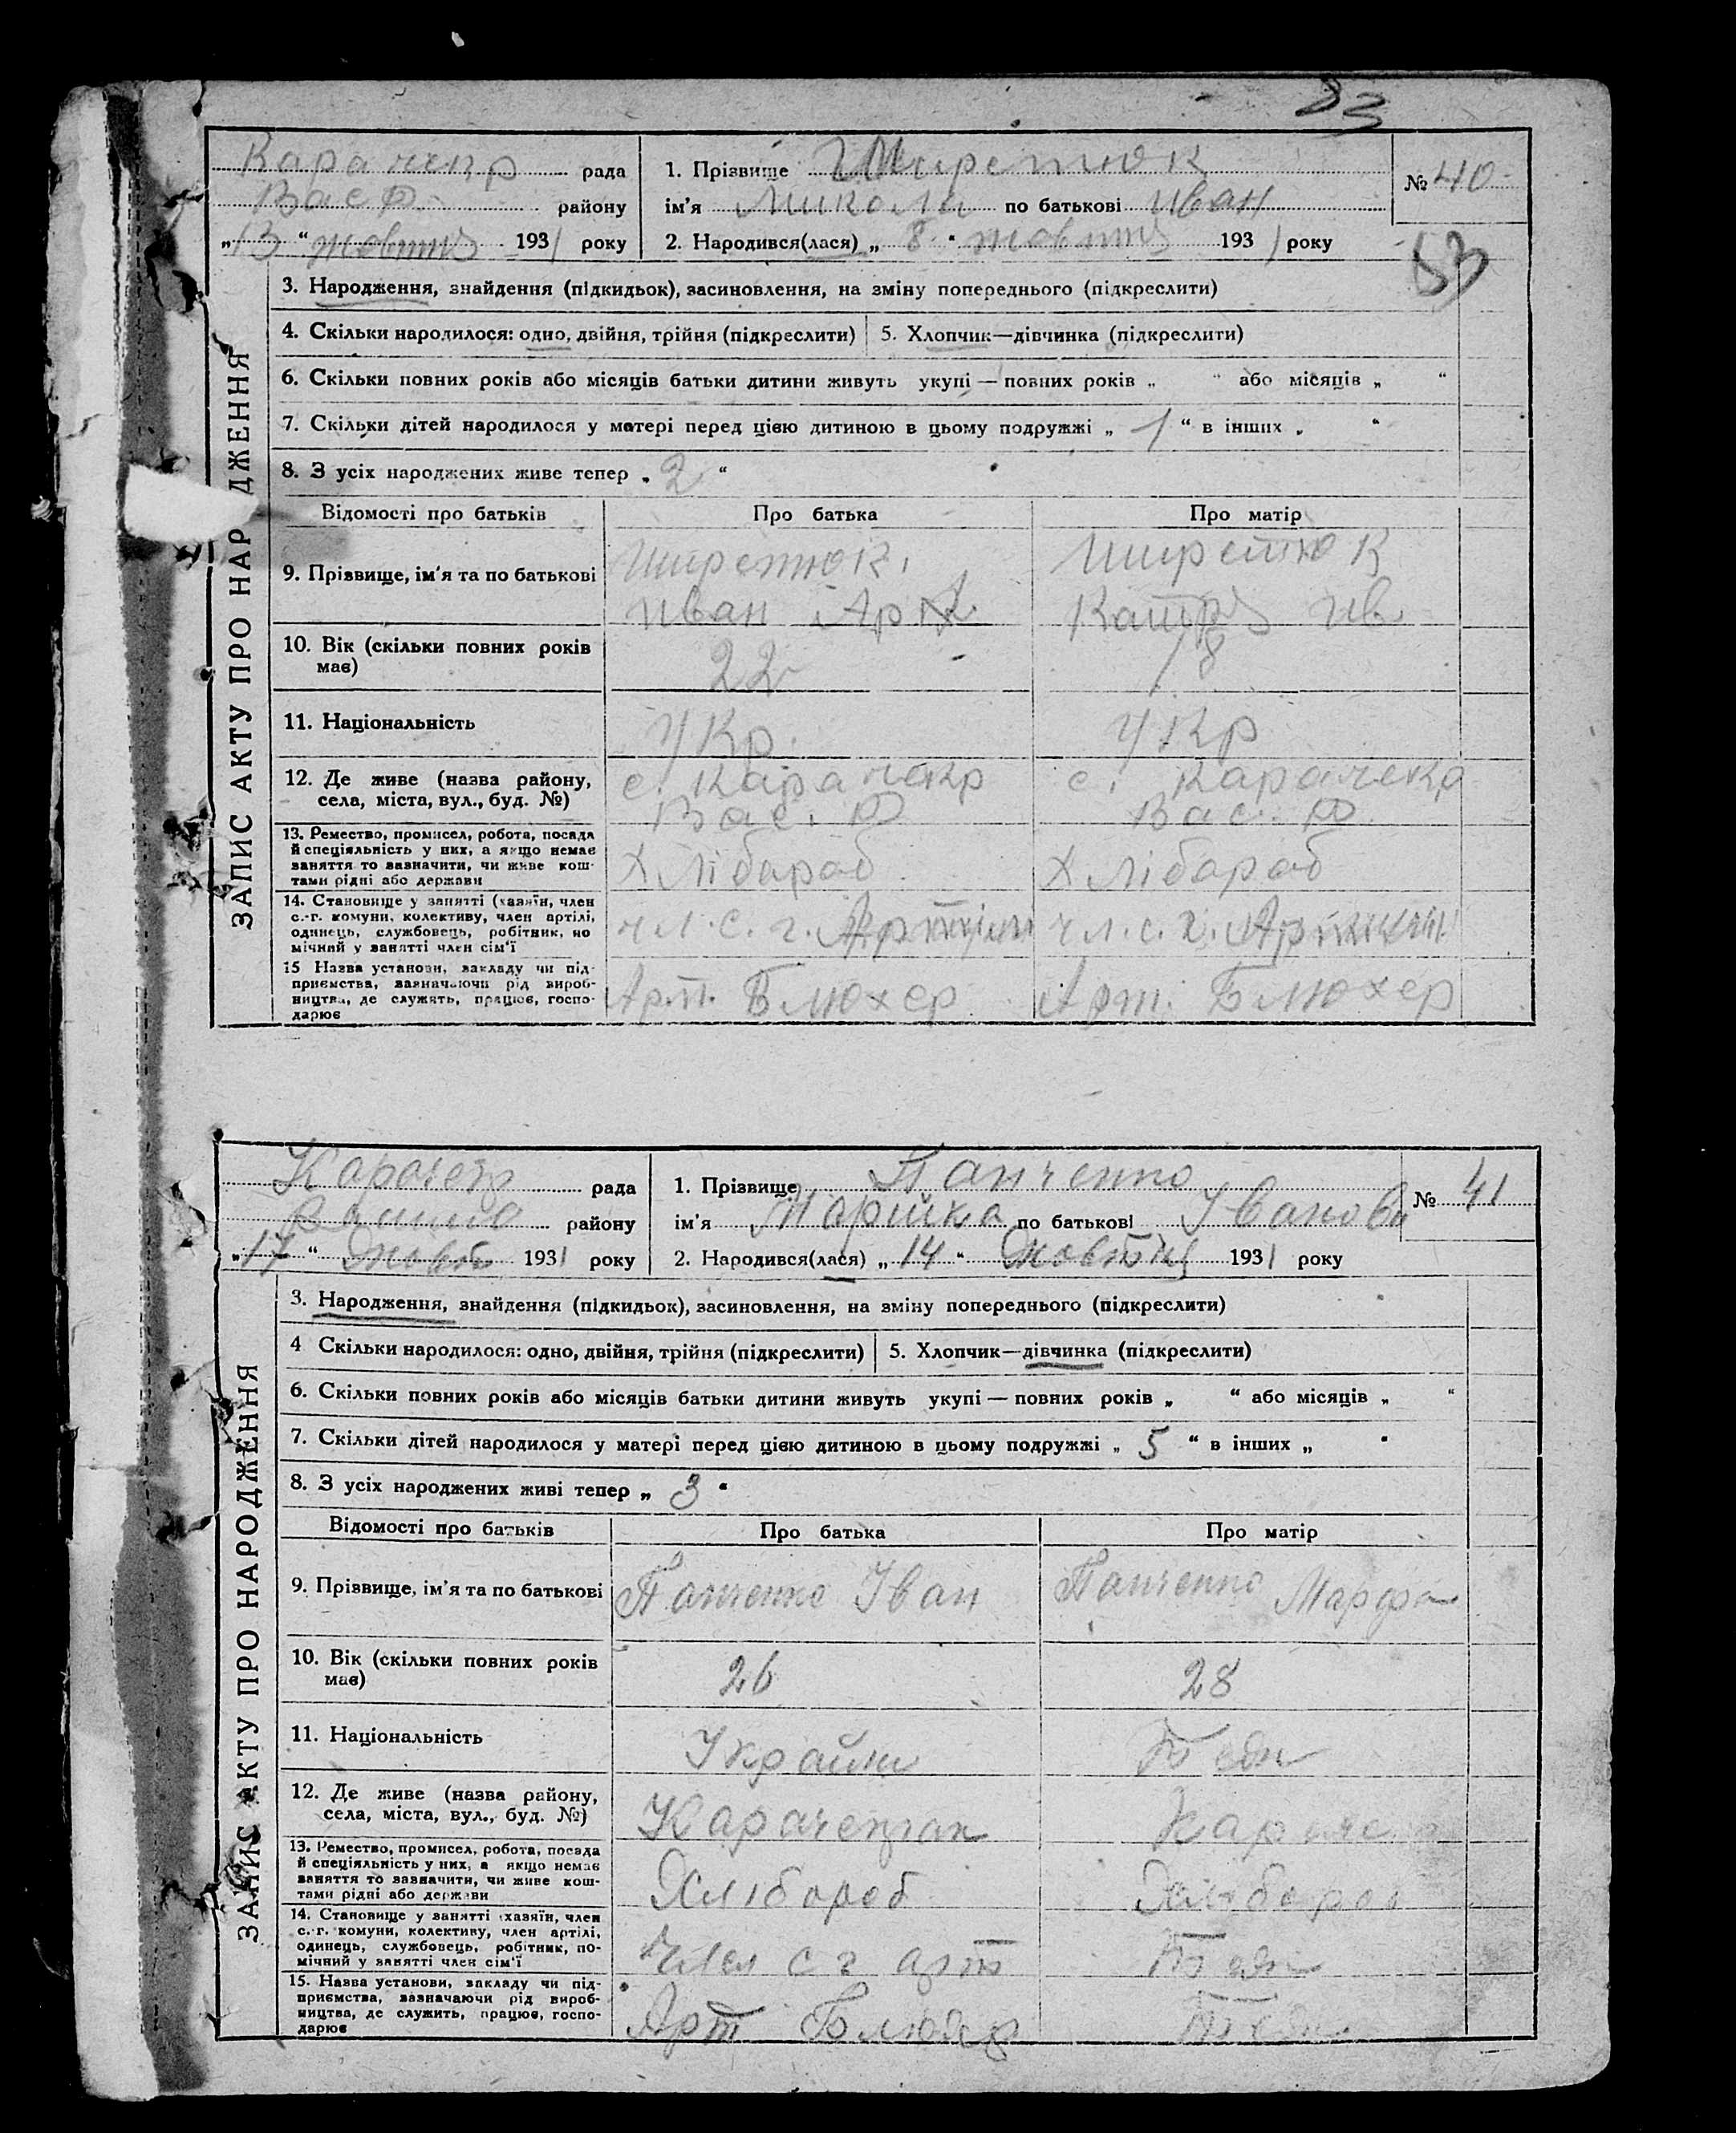 83
Карачекр рада
Вас Ф. району
„13“ жовтня 1931 року
1. Прізвище Ширетюк
ім'я Миколи по батькові Иван
2. Народився(лася) „8“ жовтня 1931 року
№ 40
53
ЗАПИС АКТУ ПРО НАР ДЖЕННЯ
3. Народження, знайдення (підкидьок), засиновлення, на зміну попереднього (підкреслити)
4. Скільки народилося: одно, двійня, трійня (підкреслити) 5. Хлопчик—дівчинка (підкреслити)
6. Скільки повних років або місяців батьки дитини живуть укупі — повних років „ “ або місяців „ “
7. Скільки дітей народилося у матері перед цією дитиною в цьому подружжі „ 1 “ в інших „ “
8. З усіх народжених живе тепер „ 2 “
Відомості про батьків Про батька Про матір
9. Прізвище, ім'я та по батькові
Ширетюк.
Иван Арх
Ширетюк
Катря Ив.
10. Вік (скільки повних років
має)
22
18
11. Національність
Укр.
Укр
12. Де живе (назва району,
села, міста, вул., буд. №)
с. Карачекр
Вас. Ф
с. Карачекр
Вас. Ф
13. Ремество, промисел, робота, посада
й спеціяльність у них, а якщо немає
заняття то зазначити, чи живе кош-
тами рідні або держави
Хлібараб
Хлібараб
14. Становище у занятті (хазяїн, член
с.-г. комуни, колективу, член артілі,
одинець, службовець, робітник, по
мічний у занятті член сім'ї
чл. с. г. Артіли
чл. с. г.
15 Назва установи, закладу чи під-
приємства, зазначаючи рід вироб-
ництва, де служять, працює, госпо-
дарює
Арт. Блюхер
Арт. Блюхер
Карачекр рада
району
„17“ Жовт 1931 року
1. Прізвище Панченко
ім'я Марійка по батькові Іванови
2. Народився(лася) „14“ Жовтня 1931 року
№ 41
ЗАПИС АКТУ ПРО НАРОДЖЕННЯ
3. Народження, знайдення (підкидьок), засиновлення, на зміну попереднього (підкреслити)
4 Скільки народилося: одно, двійня, трійня (підкреслити) 5. Хлопчик—дівчинка (підкреслити)
6. Скільки повних років або місяців батьки дитини живуть укупі — повних років „ “ або місяців „ “
7. Скільки дітей народилося у матері перед цією дитиною в цьому подружжі „ 5 “ в інших „ “
8. З усіх народжених живі тепер „ 3 “
Відомості про батьків Про батька Про матір
9. Прізвище, ім'я та по батькові
Панченко Іван
Панченко Марфа
10. Вік (скільки повних років
має)
26
28
11. Національність
Україн
Теж
12. Де живе (назва району,
села, міста, вул., буд. №)
13. Ремество, промисел, робота, посада
й спеціяльність у них, а якщо немає
заняття то зазначити, чи живе кош-
тами рідні або держави
Хлібороб
Хлібороб
14. Становище у занятті (хазяїн, член
с.-г. комуни, колективу, член артілі,
одинець, службовець, робітник, по-
мічний у занятті член сім'ї
Член с г арт
Теж
15. Назва установи, закладу чи під-
приємства, зазначаючи рід вироб-
ництва, де служить, працює, госпо-
дарює
Арт
Теж